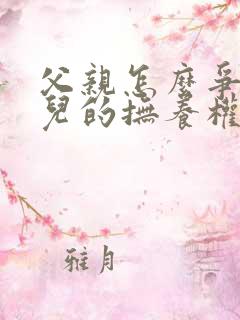 父親怎麼爭
兒的撫養權
雅月